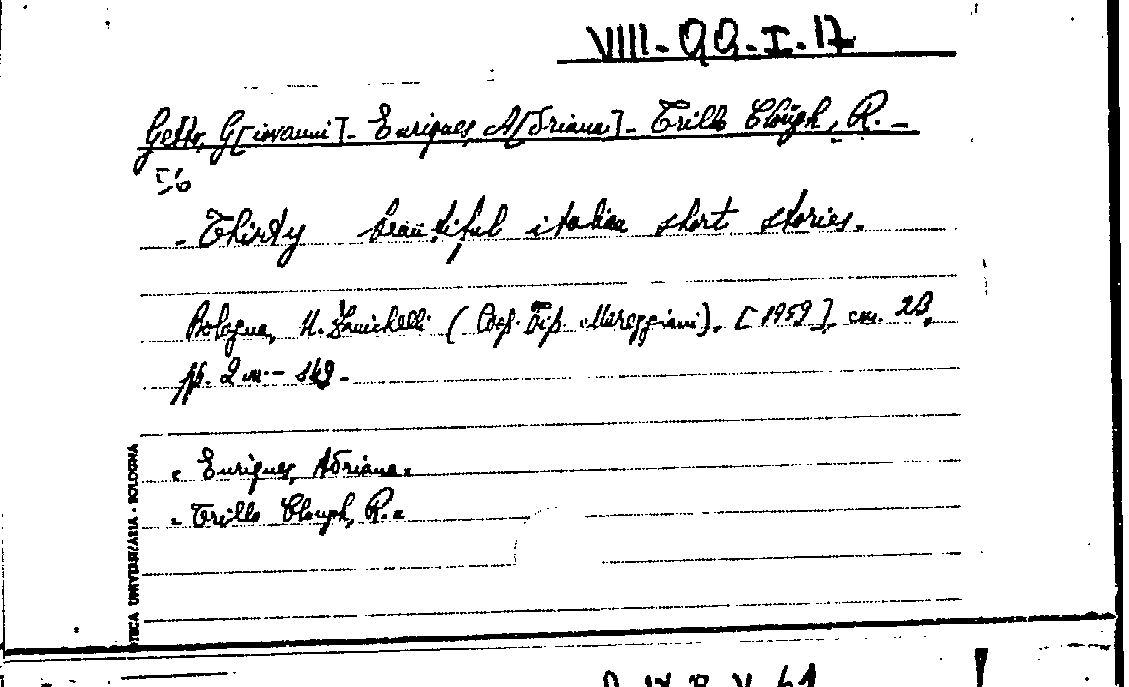 VIII-QQ-I-17
Getto, G[iovanni]- Enriques, A[driana]- Trillo Clough, R. -
- Thirty beautiful italian short stories.
Bologna, N. Zanichelli ( Coop. Tip. Mareggiani). [1959], cm. 23,
pp. 2 - 149 -
- Enriques, Adriana.
- Trillo Clough, R. -
OTECA UNIVERSITARIA - BOLOGNA